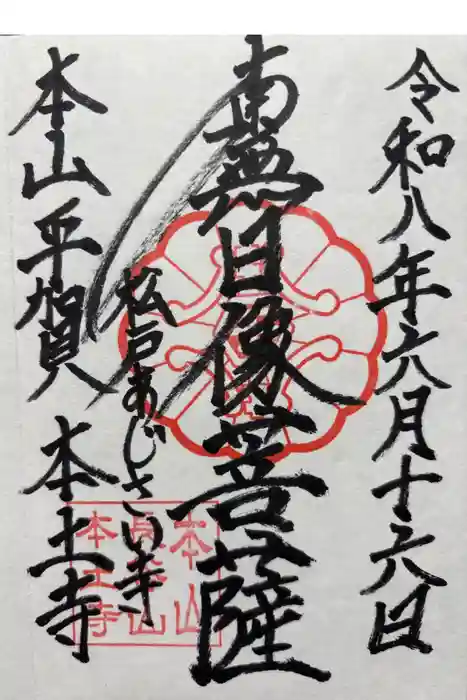 令和八年六月十六日
南無日像菩薩
松戸あじさい寺
本山平賀 本土寺
本山
長谷山
本土寺